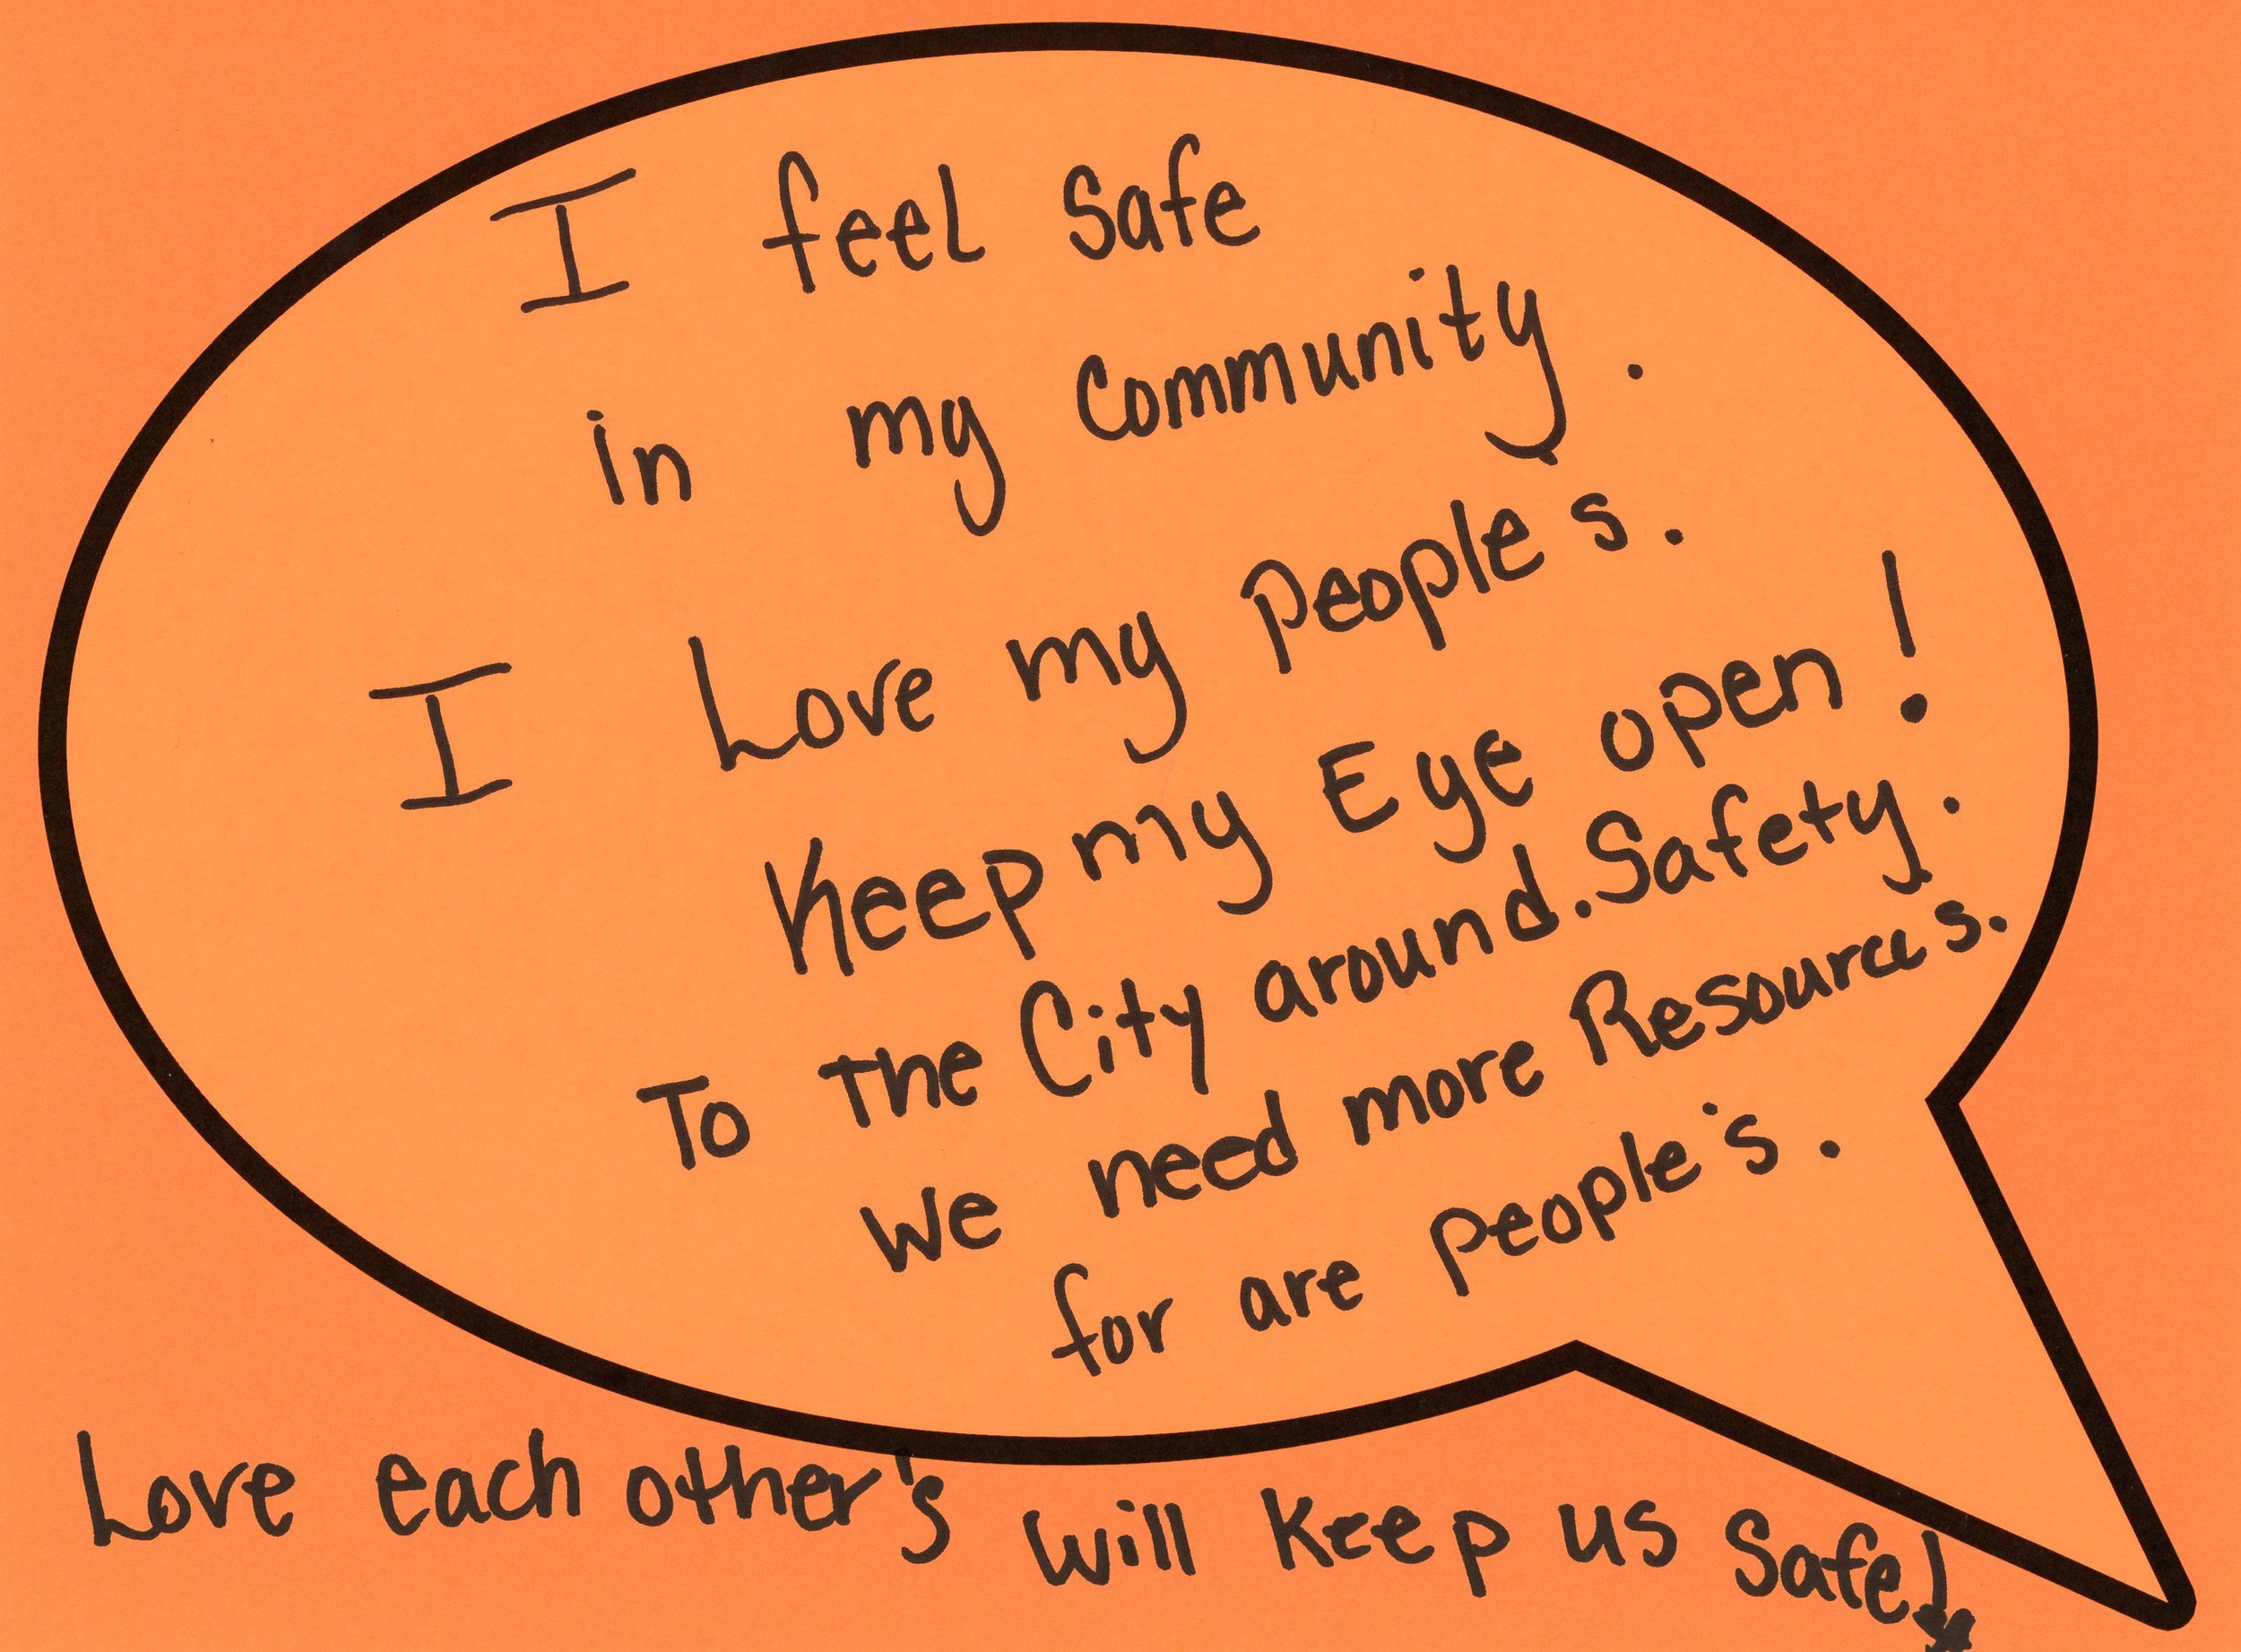 I feel Safe
in my Community.
I Love my peoples.
Keep my Eye open!
To the City around. Safety.
We need more Resources.
for are people's.
Love each other's will keep us Safe!